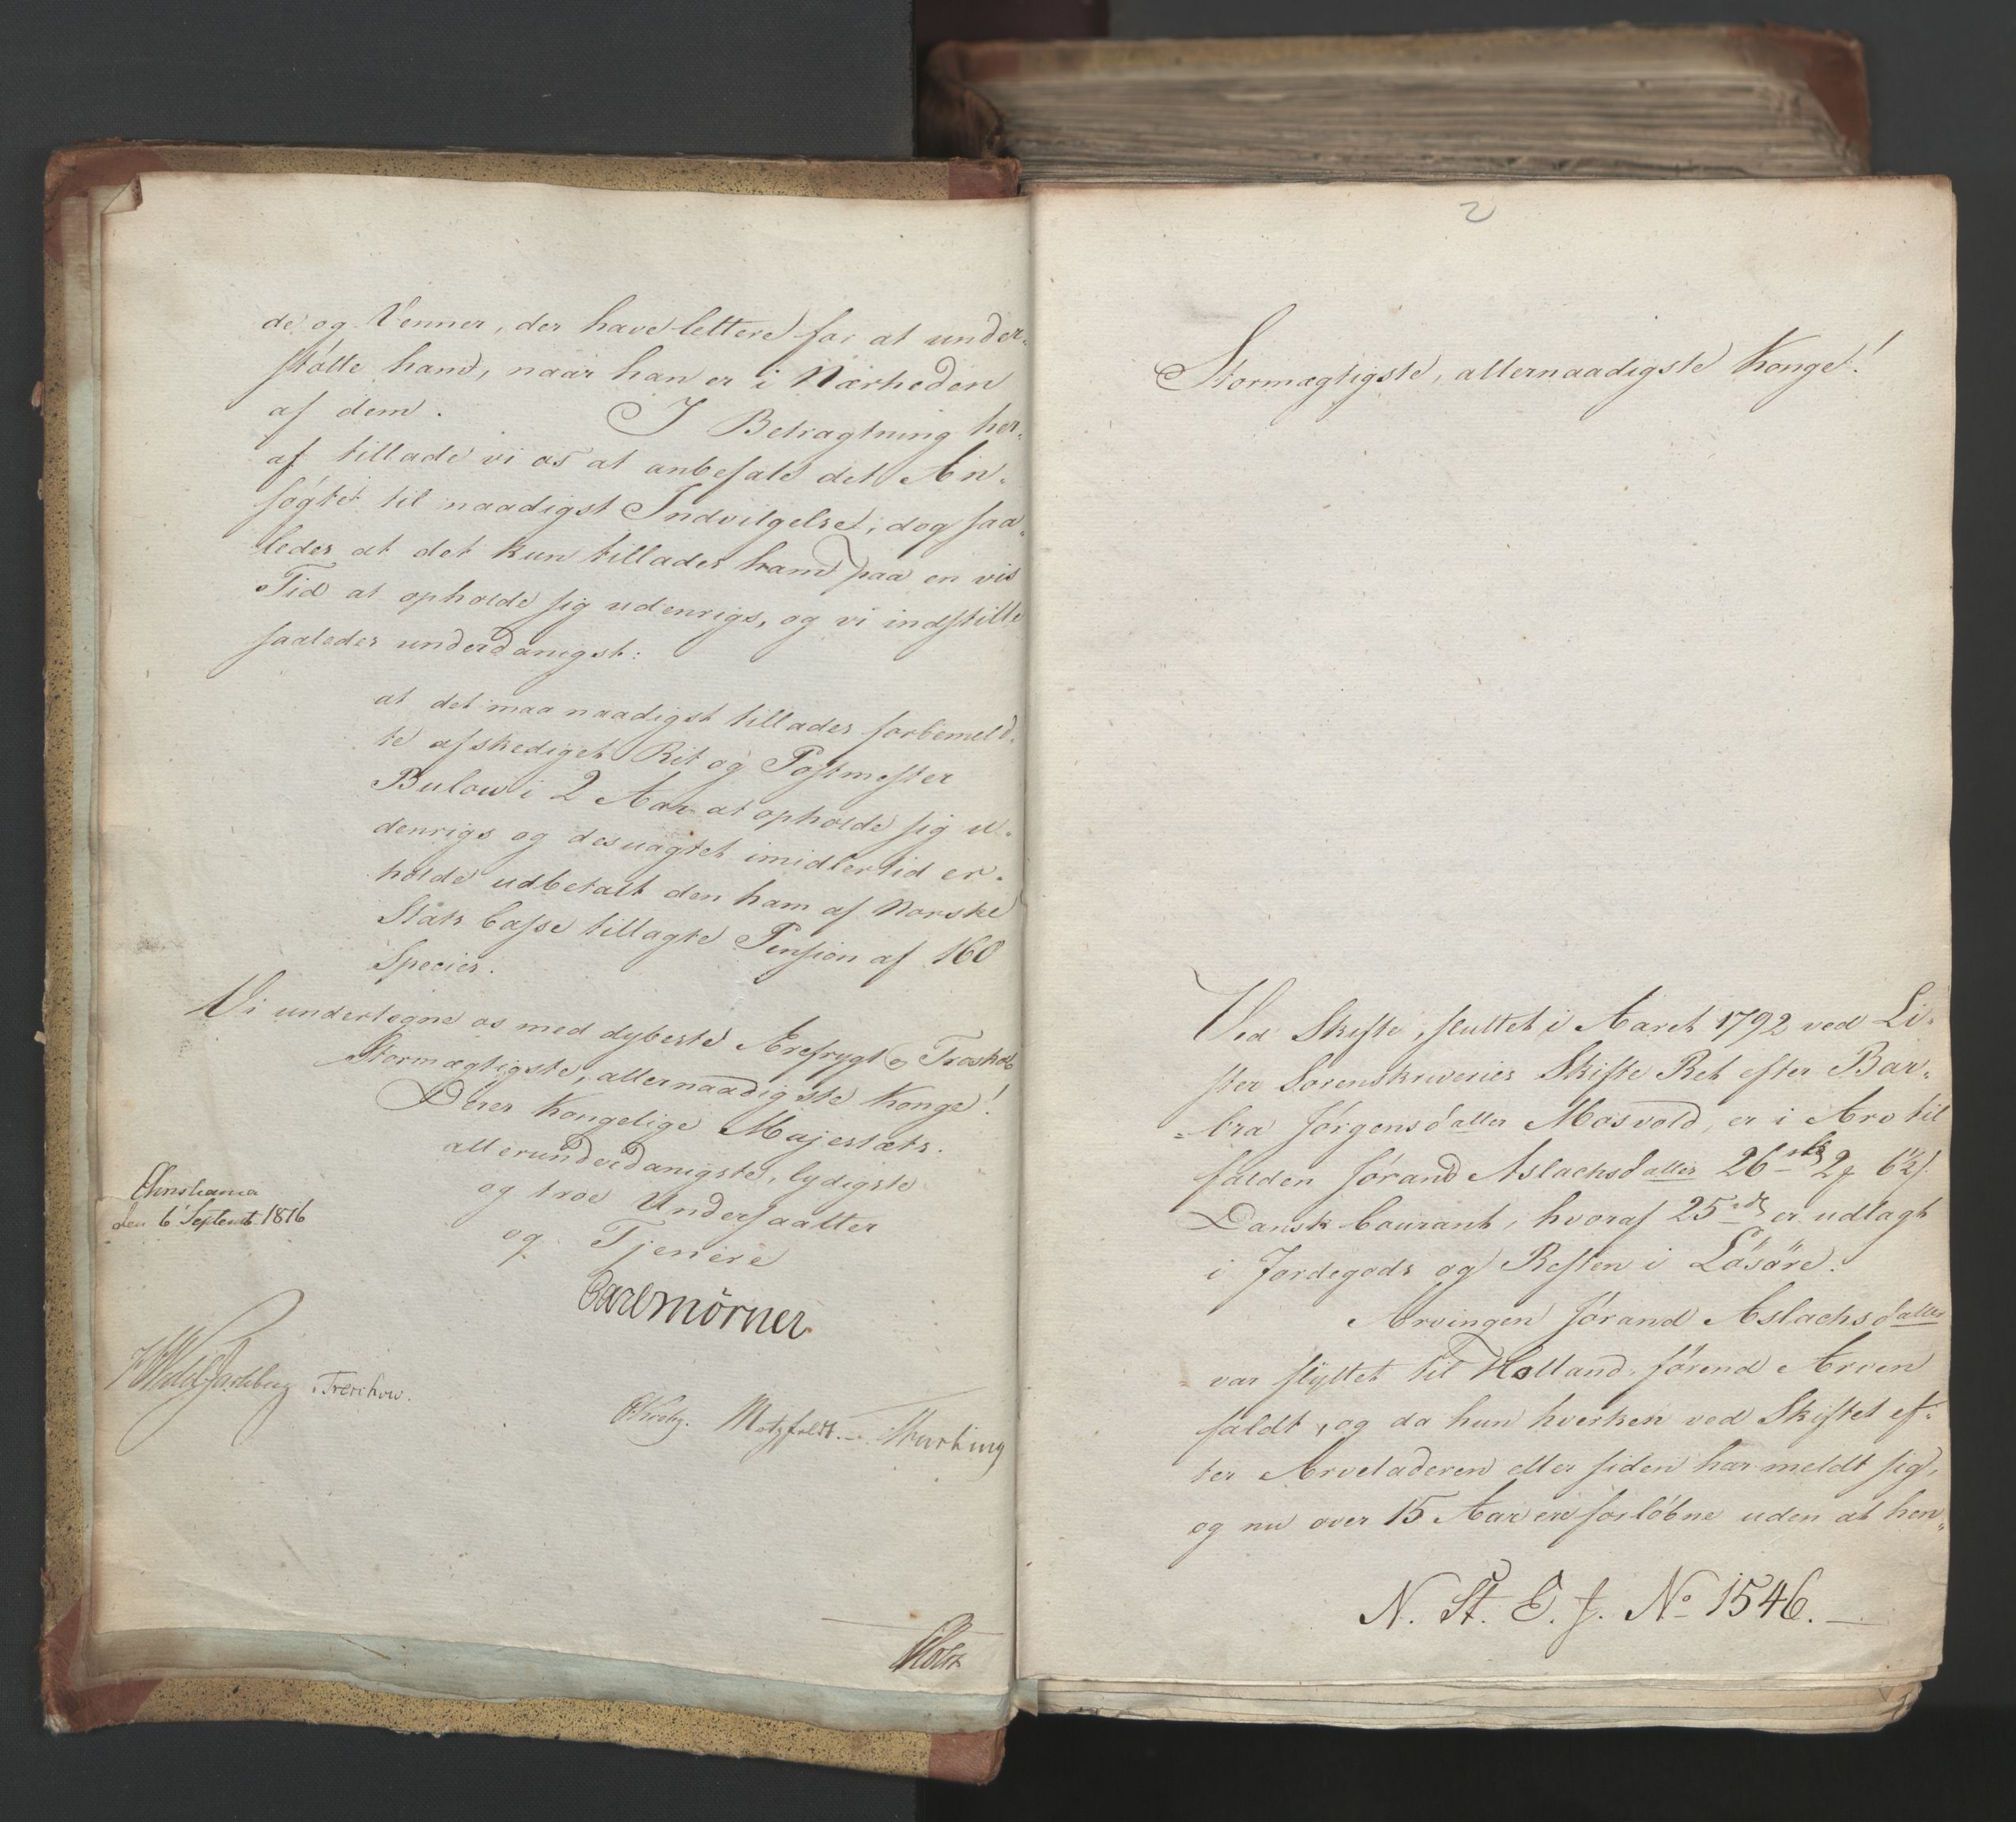 de og Venner, der have lettere for at under-
støtte ham, naar han er i Nærheden
af dem. I Betragtning her-
af tillade vi os at anbefale det An-
søgte til naadigst Indvilgelse, dog saa-
ledes at det kun tillades ham paa en vis
Tid at opholde sig udenrigs, og vi indstille
saaledes underdanigst:
at det maa naadigst tillades forbemeld-
te afskediget Rit og Postmester
Bulow i 2 Aar at opholde sig u-
denrigs og desuagtet imidlertid er-
holde udbetalt den ham af Norske
Stats Casse tillagte Pension af 160
Species.
Vi undertegne os med dybeste Ærefrygt og Troskab
Stormægtigste, allernaadigste Konge!
Deres Kongelige Majestæts
allerunderdanigste, lydigste
og troe Undersaatter
og Tjenere
Christiania
den 6 Septemb. 1816
Carl Mörner
Wedel Jarlsberg Treschow.
Krohg. Motzfeldt. 
Holst
2
Stormægtigste, allernaadigste Konge!
Ved Skifte, sluttet i Aaret 1792 ved Li-
ster Sorenskriveries Skifte Ret efter Bar-
=bra Jørgensdatter Mosvold, er i Arv til
falden Jørand Aslachsdatter 26 rd 2 6½ s.
Dansk Courant, hvoraf 25 rd er udlagt
i Jordegods og Resten i Løsøre.
Arvingen Jørand Aslachsdatter
var flyttet til Holland, førend Arven
faldt, og da hun hverken ved Skiftet ef-
ter Arveladeren eller siden har meldt sig,
og nu over 15 Aar ere forløbne uden at hen-
N. St. E. J. No 1546.